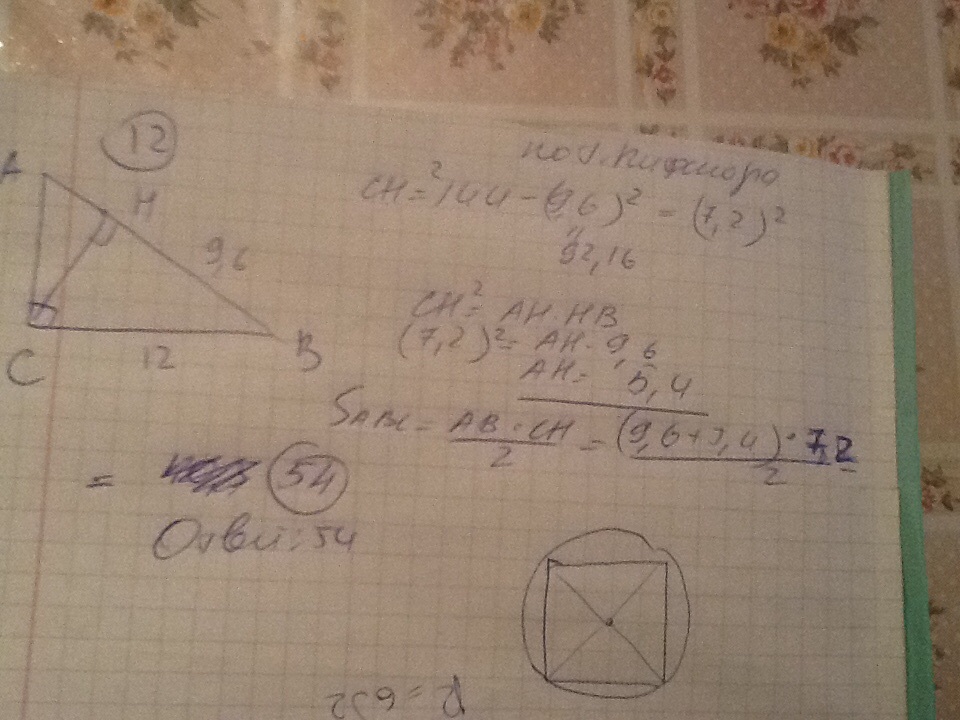 12
A
H
9,6
12
C
B
по т. Пифагора
CH² = 144 - (9,6)² = (7,2)²
92,16
CH² = AH·HB
(7,2)² = AH·9,6
AH = 5,4
S ABC = AB·CH / 2 = (9,6+5,4)·7,2 / 2
= 54
Ответ: 54
R = 6√2